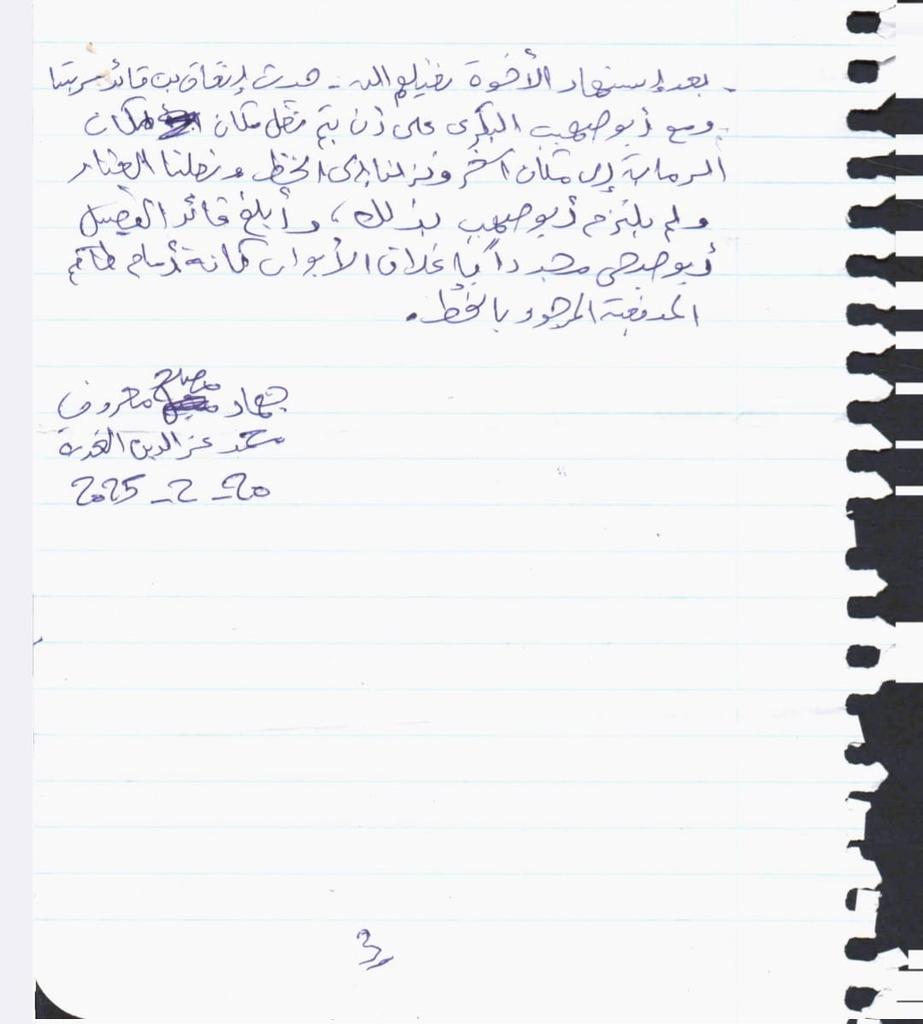 - بعد إستشهاد الأخوة تقبلهم الله - حدث إتفاق بين قائد سريتنا
ومع أبو صهيب البكري على أن يتم نقل مكان مكان
الرماية إلى مكان آخر ونزلنا إلى الخط ونقلنا العتاد
ولم يلتزم أبو صهيب بذلك، وأبلغ قائد الفصيل
أبو صبحي مجدداً بإغلاق الأبواب كانة أمام طاقم
المدفعية الموجود بالخط.
جهاد مصباح معروف
محمد عز الدين
20-2-2025
3